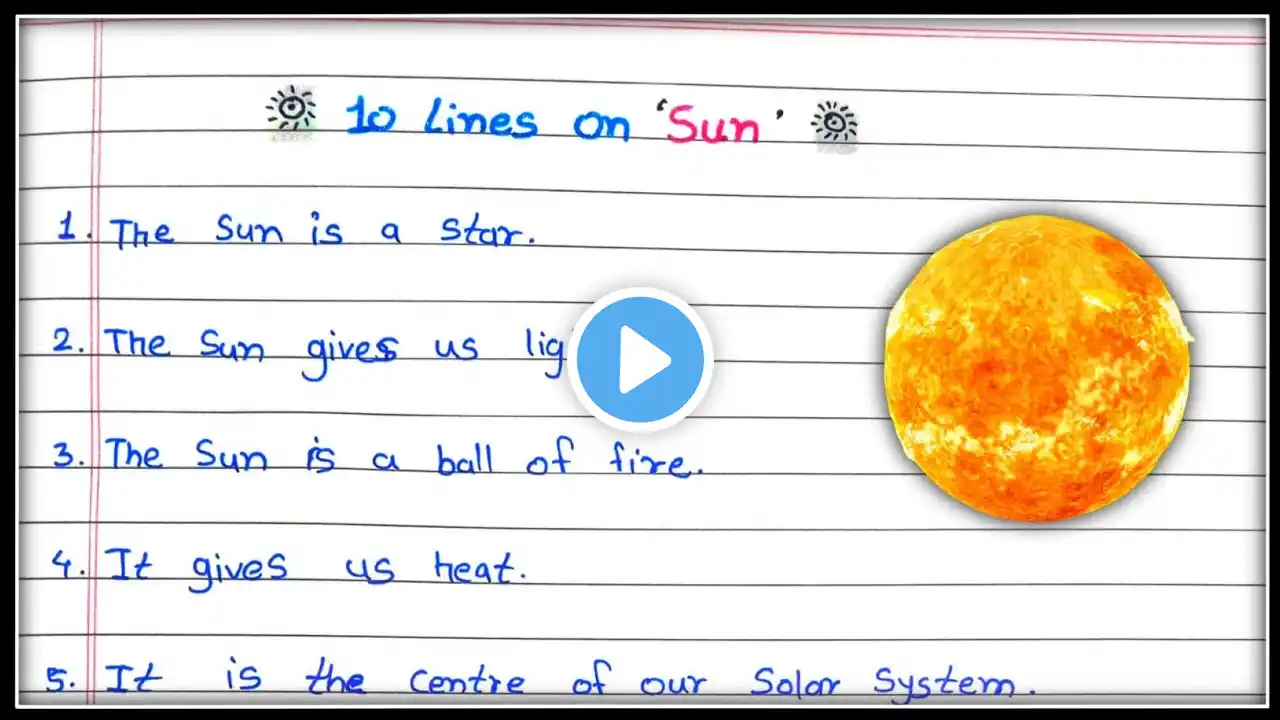 10 Lines on 'Sun'
1. The Sun is a star.
2. The Sun gives us
3. The Sun is a ball of fire.
4. It gives us heat.
5. It is the centre of our Solar System.